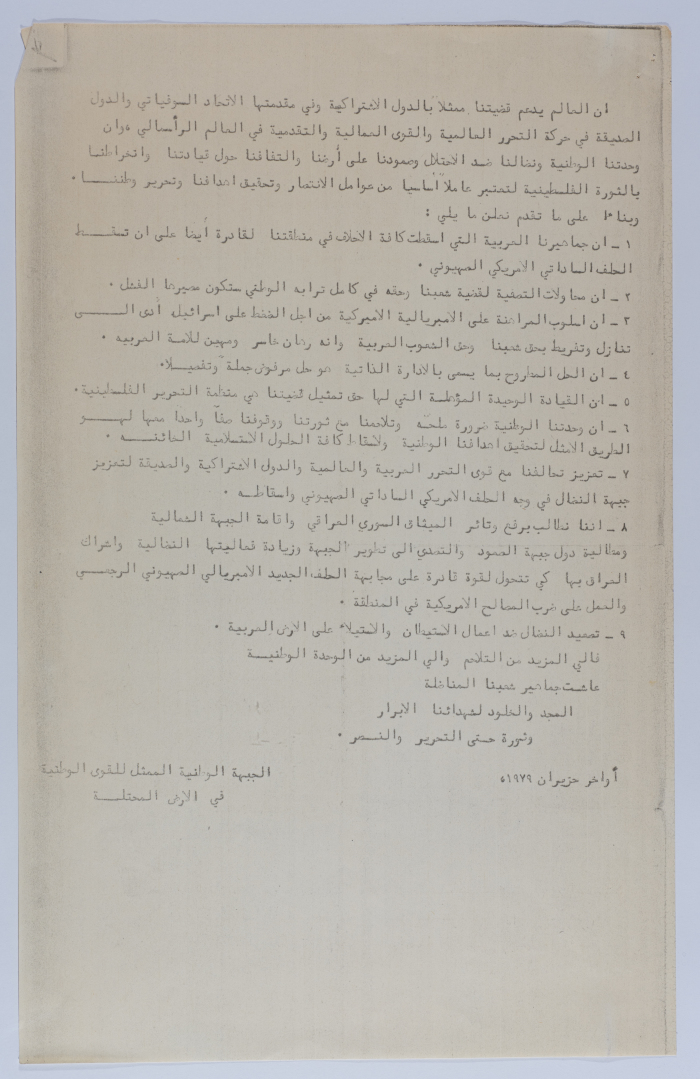 ان العالم يدعم قضيتنا ممثلاً بالدول الاشتراكية وفي مقدمتها الاتحاد السوفياتي والدول
الصديقة في حركة التحرر العالمية والقوى العمالية والتقدمية في العالم الرأسمالي ، وان
وحدتنا الوطنية ونضالنا ضد الاحتلال وصمودنا على أرضنا والتفافنا حول قيادتنا وانخراطنا
بالثورة الفلسطينية لتعتبر عاملاً أساسيا من عوامل الانتصار وتحقيق اهدافنا وتحرير وطننا .
وبناءً على ما تقدم نعلن ما يلي :
١ - ان جماهيرنا العربية التي اسقطت كافة الاحلاف في منطقتنا لقادرة أيضا على ان تسقط
الحلف الساداتي الامريكي الصهيوني .
٢ - ان محاولات التصفية لقضية شعبنا وحقه في كامل ترابه الوطني ستكون مصيرها الفشل .
٣ - ان اسلوب المراهنة على الامبريالية الاميركية من اجل الضغط على اسرائيل أدى الى
تنازل وتفريط بحق شعبنا وحق الشعوب العربية وانه رهان خاسر ومهين للامة العربيه .
٤ - ان الحل المطروح بما يسمى بالادارة الذاتية هو حل مرفوض جملة وتفصيلا .
٥ - ان القيادة الوحيدة المؤهلة التي لها حق تمثيل قضيتنا هي منظمة التحرير الفلسطينية .
٦ - أن وحدتنا الوطنية ضرورة ملحّه وتلاحمنا مع ثورتنا ووقوفنا صفاً واحدا معها لهو
الطريق الامثل لتحقيق اهدافنا الوطنية ولاسقاط كافة الحلول الاستسلامية الخائنه .
٧ - تعزيز تحالفنا مع قوى التحرر العربية والعالمية والدول الاشتراكية والصديقة لتعزيز
جبهة النضال في وجه الحلف الامريكي الساداتي الصهيوني واسقاطه .
٨ - اننا نطالب برفع وتائر الميثاق السوري العراقي واقامة الجبهة الشمالية
ومطالبة دول جبهة الصمود والتصدي الى تطوير الجبهة وزيادة فعاليتها النضالية واشراك
العراق بها كي تتحول لقوة قادرة على مجابهة الحلف الجديد الامبريالي الصهيوني الرجعي
والعمل على ضرب المصالح الامريكية في المنطقة .
٩ - تصعيد النضال ضد اعمال الاستيطان والاستيلاء على الارض العربية .
فالى المزيد من التلاحم والى المزيد من الوحدة الوطنية
عاشت جماهير شعبنا المناضلة
المجد والخلود لشهدائنا الابرار
وثورة حتى التحرير والنصر .
أواخر حزيران ١٩٧٩ الجبهة الوطنية الممثل للقوى الوطنية
في الارض المحتلة